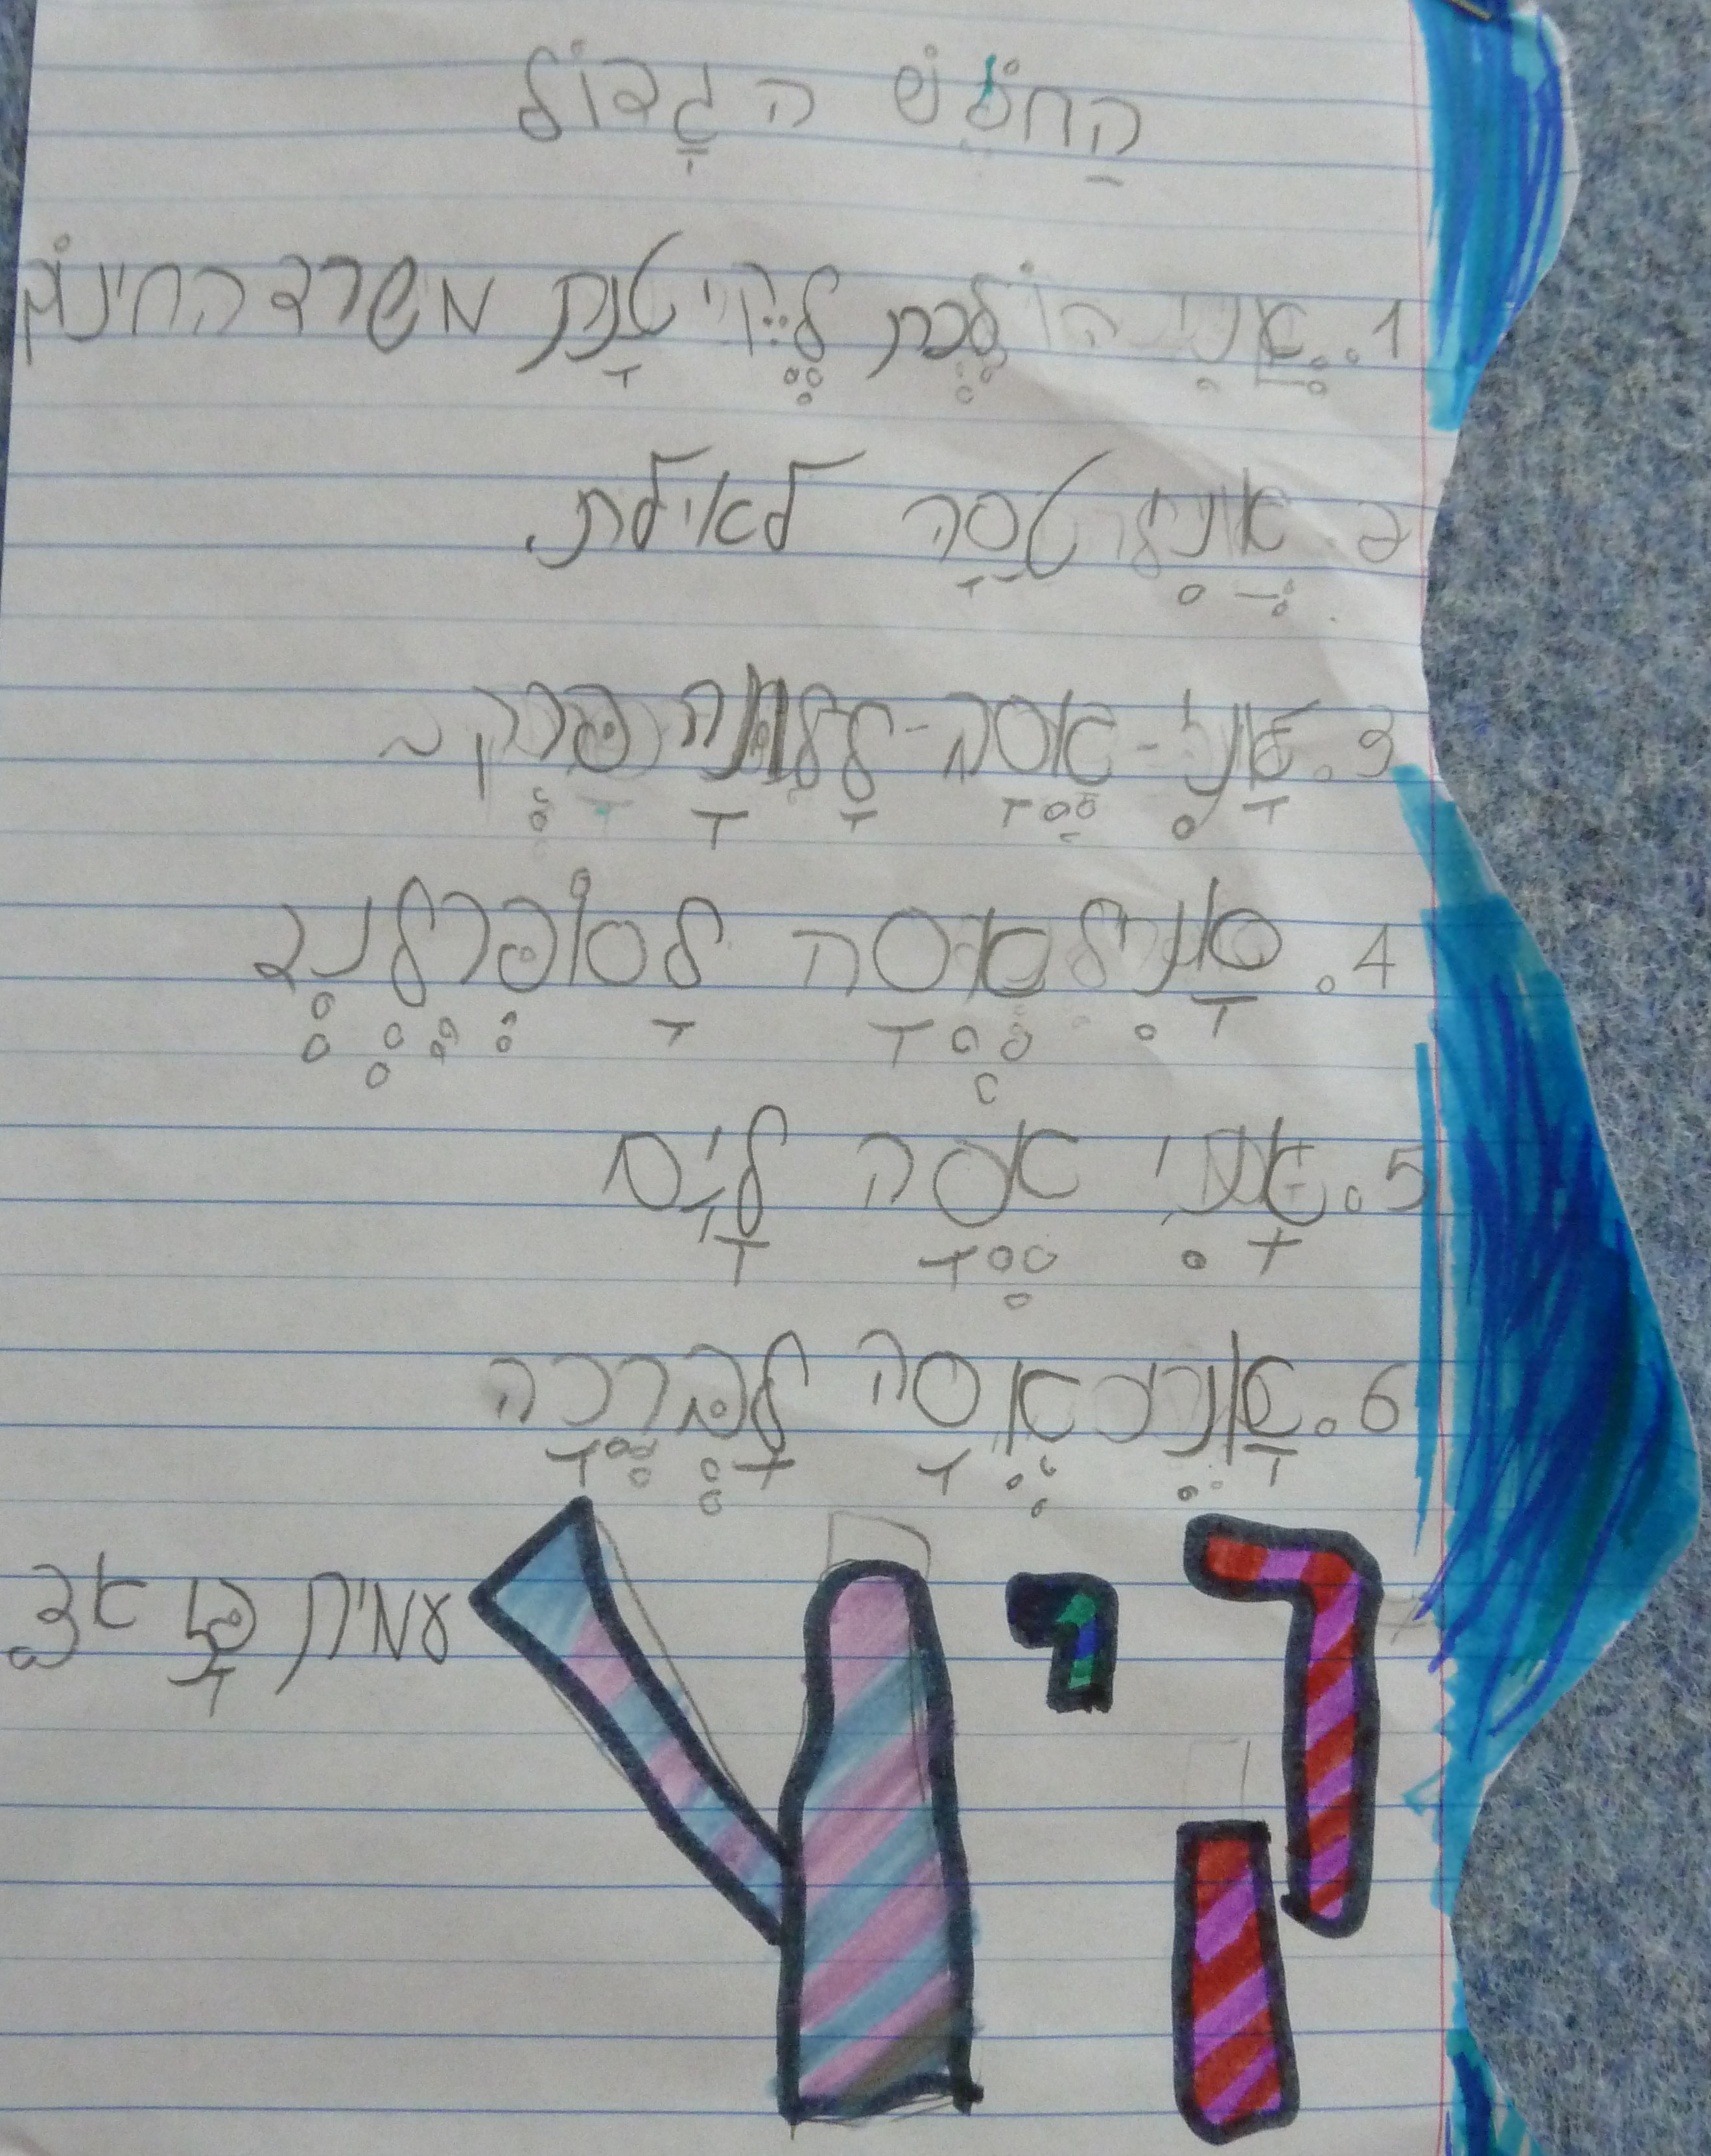 הַחֹפֶשׁ הגָדוֹל
1. אֲנִי הוֹלֶכֶת לְקייטָנַת משרד החינוך
2. אֲנִי טַסָה לאילת.
3. אָנִי אסָה
4. אָנִי אסָה לָסוֹפרלנד
5. אָנִי אסָה לָיָם
6. אָנִי אסָה לָברכָה
קיץ
עמית